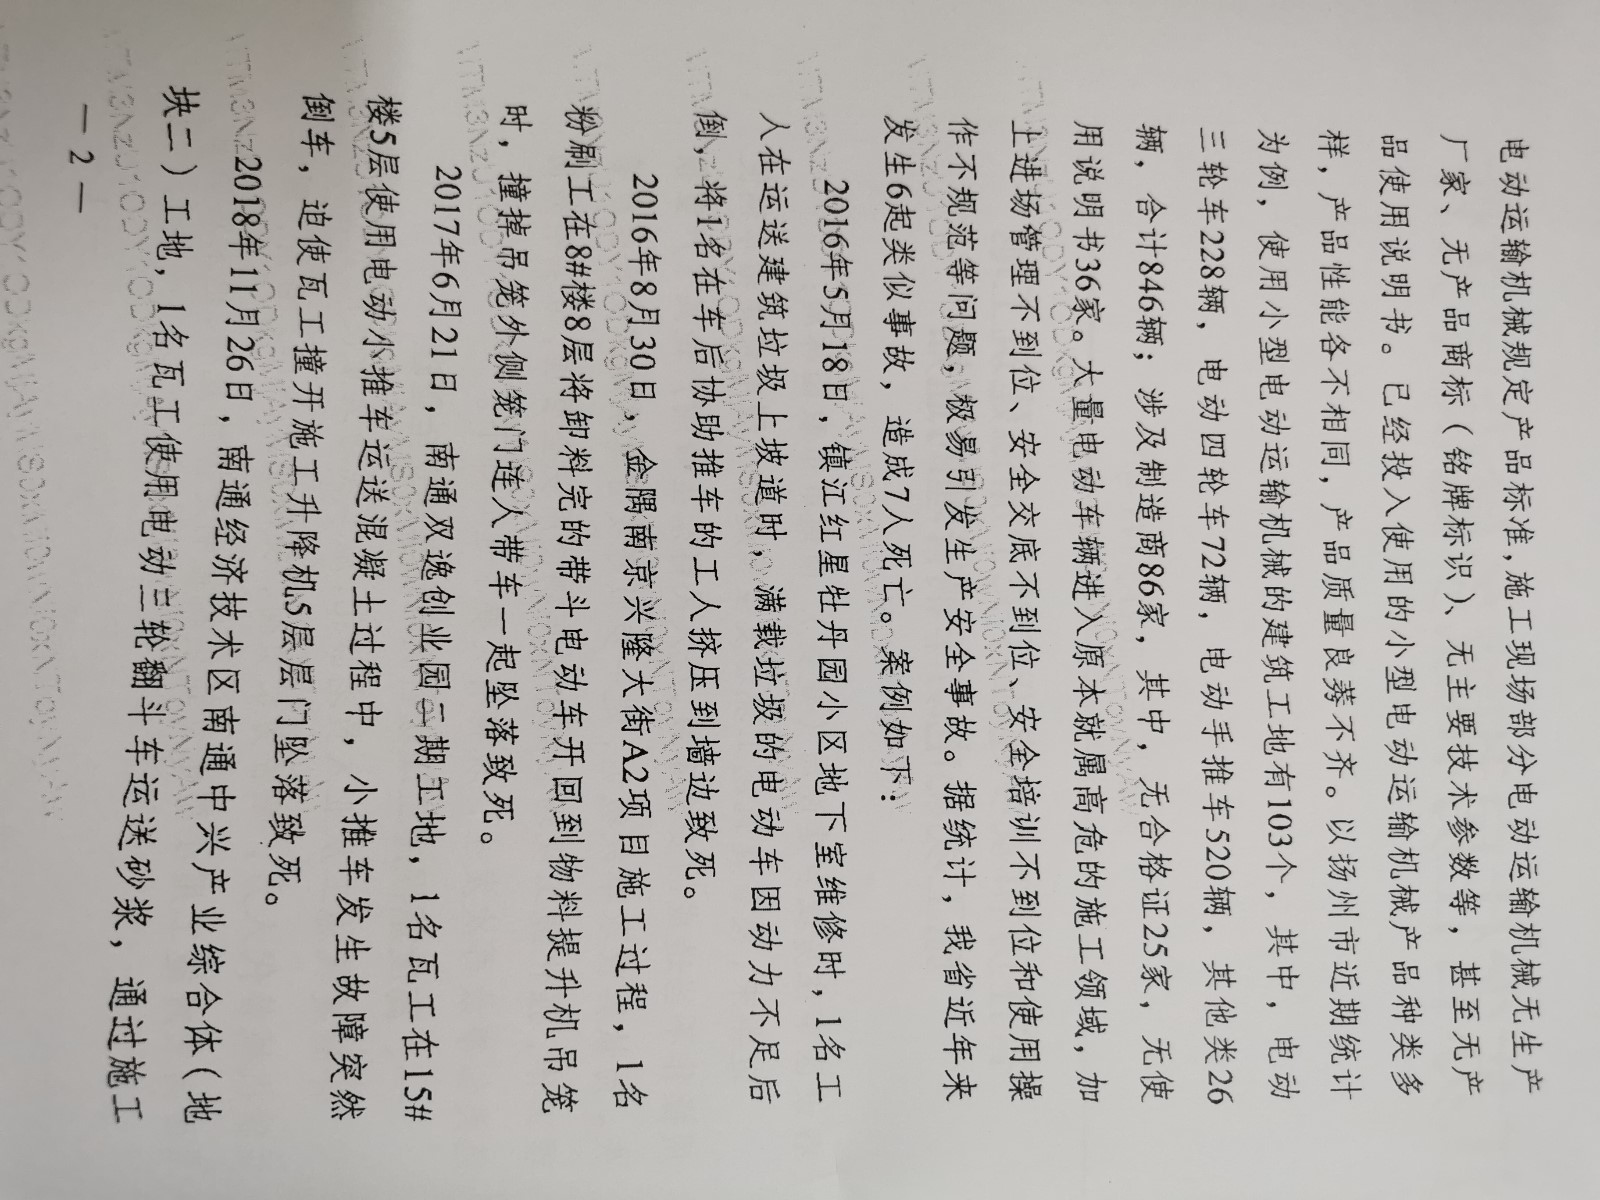 电动运输机械规定产品标准,施工现场部分电动运输机械无生产
厂家、无产品商标（铭牌标识）、无主要技术参数等，甚至无产
品使用说明书。已经投入使用的小型电动运输机械产品种类多
样，产品性能各不相同，产品质量良莠不齐。以扬州市近期统计
为例，使用小型电动运输机械的建筑工地有103个，其中，电动
三轮车228辆，电动四轮车72辆，电动手推车520辆，其他类26
辆，合计846辆；涉及制造商86家，其中，无合格证25家，无使
用说明书36家。大量电动车辆进入原本就属高危的施工领域，加
上进场管理不到位、安全交底不到位、安全培训不到位和使用操
作不规范等问题，极易引发生产安全事故。据统计，我省近年来
发生6起类似事故，造成7人死亡。案例如下：
2016年5月18日，镇江红星牡丹园小区地下室维修时，1名工
人在运送建筑垃圾上坡道时，满载垃圾的电动车因动力不足后
倒，将1名在车后协助推车的工人挤压到墙边致死。
2016年8月30日，金隅南京兴隆大街A2项目施工过程，1名
粉刷工在8#楼8层将卸料完的带斗电动车开回到物料提升机吊笼
时，撞掉吊笼外侧笼门连人带车一起坠落致死。
2017年6月21日，南通双逸创业园二期工地，1名瓦工在15#
楼5层使用电动小推车运送混凝土过程中，小推车发生故障突然
倒车，迫使瓦工撞开施工升降机5层层门坠落致死。
2018年11月26日，南通经济技术区南通中兴产业综合体（地
块二）工地，1名瓦工使用电动三轮翻斗车运送砂浆，通过施工
— 2 —